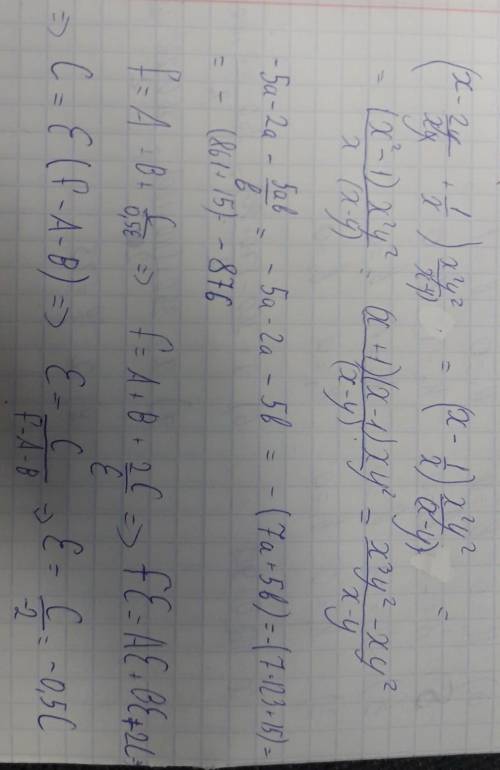 (x - 2y/xy + 1/x) x²y²/(x-y) = (x - 1/x) x²y²/(x-y) =
= (x²-1) x²y²/x (x-y) = (x+1)(x-1)xy²/(x-y) = x³y²-xy²/x-y
-5a-2a - 5ab/b = -5a-2a-5b = -(7a+5b) = -(7·123+15) =
= -(861+15) -876
f = A - B + C/0,5E => f = A + B + 2C/E => fE = AE + BE + 2C =
=> C = E(f-A-B) => E = C/f-A-B => E = C/-2 = -0,5C